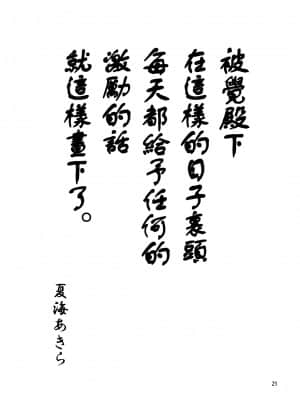 被覺殿下
在這樣的日子裏頭
每天都給予任何的
激勵的話
就這樣畫下了。
夏海あきら
21